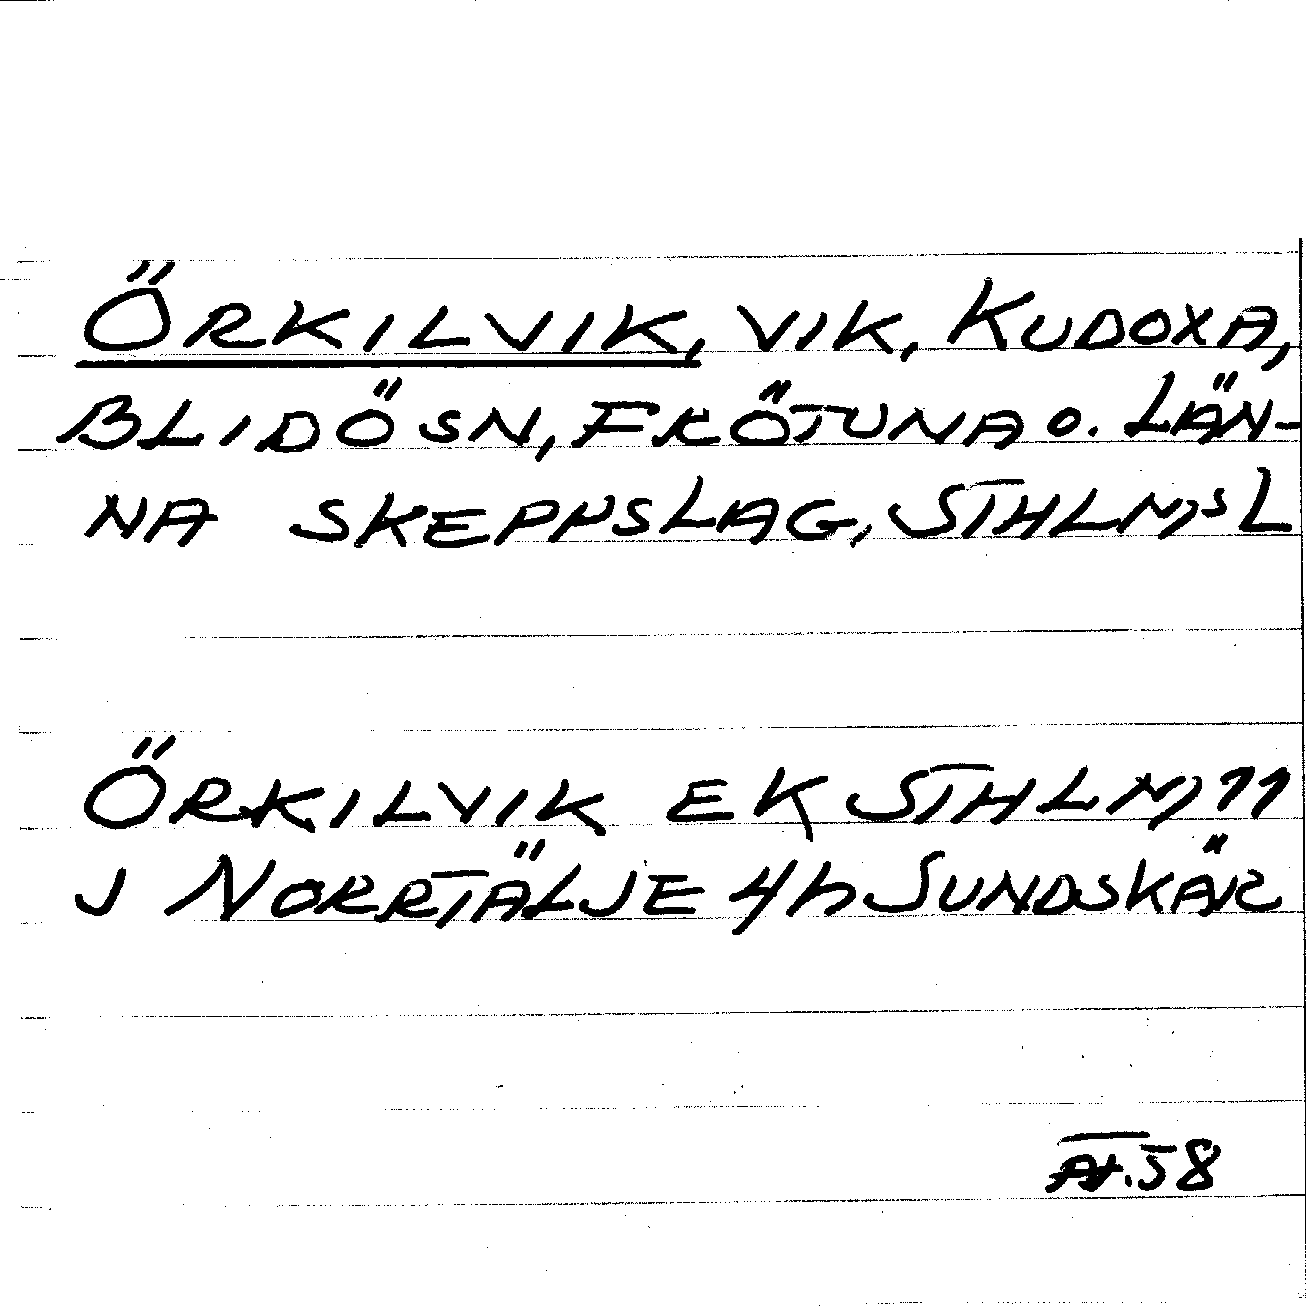 ÖRKILVIK, VIK, KUDOXA,
BLIDÖ SN, FRÖTUNA O. LÄN-
NA SKEPPSLAG, STHLM,S L
ÖRKILVIK EK STHLM 11
J NORRTÄLJE 4h SUNDSKÄR
58